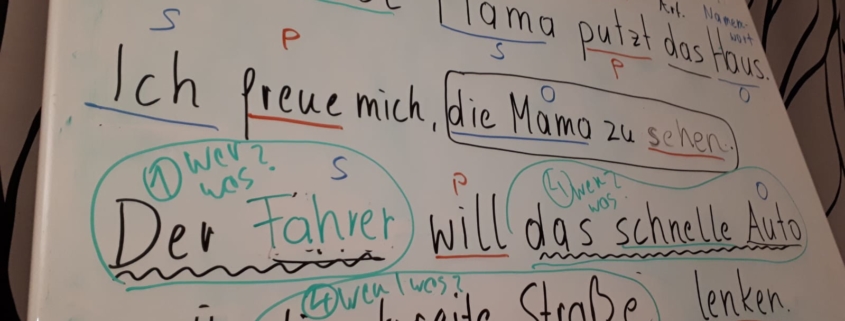 Art. Namenwort
Mama putzt das Haus.
S P O
S P O
Ich freue mich, die Mama zu sehen.
① wer? was? S P ④ wen? was? O
Der Fährer will das schnelle Auto
④ wen / was?
Straße lenken.